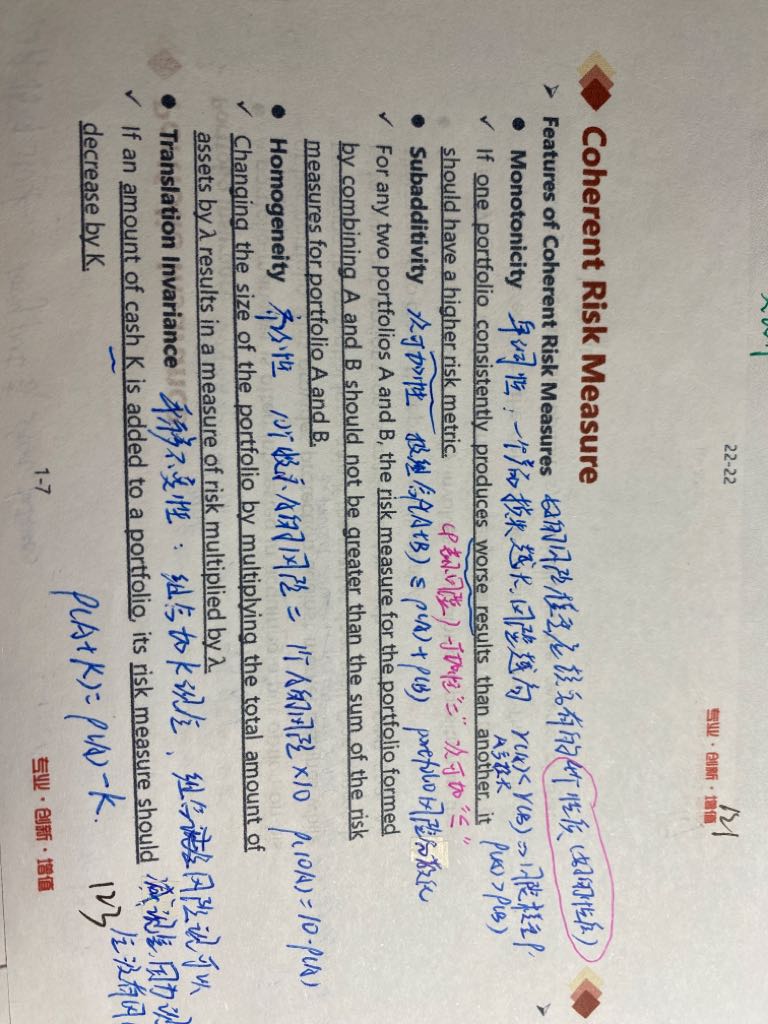 22-22
专业·创新·增值
121
Coherent Risk Measure
➢ Features of Coherent Risk Measures 好的风险核度应该具有的 个性质(好的性质)
● Monotonicity 单调性:一个 损失越大,风险越高 r(A)<r(B) ⇒ 风险 ρ.
ρ(A)>ρ(B)
✓ If one portfolio consistently produces worse results than another, it
should have a higher risk metric.
可加性"=" 次可加"≤"
● Subadditivity 次可加性 ρ(A+B) ≤ ρ(A)+ρ(B) portfolio风险分散化
✓ For any two portfolios A and B, the risk measure for the portfolio formed
by combining A and B should not be greater than the sum of the risk
measures for portfolio A and B.
● Homogeneity 齐次性 10个 风险 = 1个A的风险×10 ρ(10A)=10·ρ(A)
✓ Changing the size of the portfolio by multiplying the total amount of
assets by λ results in a measure of risk multiplied by λ
● Translation Invariance 平移不变性:组合加K现金,组合 风险 可以
减 现金,因为现
金没有风
✓ If an amount of cash K is added to a portfolio, its risk measure should
decrease by K.
ρ(A+K)=ρ(A)-K.
123
1-7
专业·创新·增值